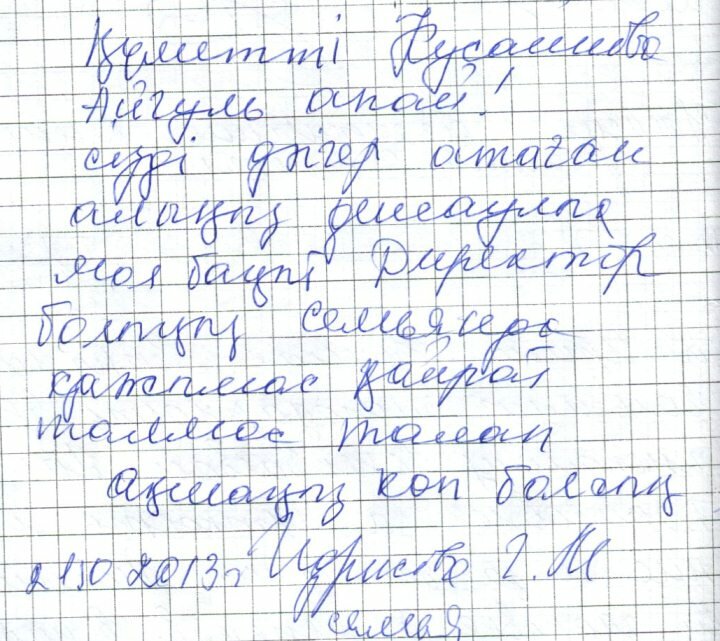 Құметті Хусаинова
Айгуль апай!
сізді дәгер атаған
алыңың денсаулық
мол бақыт Директір
болыңың семьянерс
қажымас қайрат
талмас талап
ақшаңың коп болсың
21,10 2013г Идрисова Г.М
семья